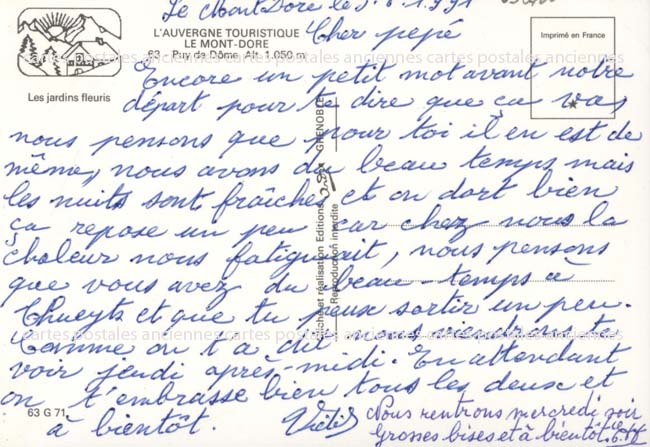 Le Mont Dore le
Cher pépé
L'AUVERGNE TOURISTIQUE
LE MONT-DORE
63 - Puy de Dôme Alt. 1.050 m
Imprimé en France
Les jardins fleuris
Encore un petit mot avant notre
départ pour te dire que ça va,
nous pensons que pour toi il en est de
même, nous avons du beau temps mais
les nuits sont fraîches et on dort bien
ça repose un peu car chez nous la
chaleur nous fatiguait, nous pensons
que vous avez du beau-temps à
Thueyts et que tu peux sortir un peu.
cartes postales anciennes cartes postales anciennes cartes postales anciennes
Comme on t'a dit nous viendrons te
voir jeudi après-midi. En attendant
on t'embrasse bien tous les deux et
à bientôt.
Nous rentrons mercredi soir
Grosses bises et à bientôt
63 G 71
GRENOBLE
Affiche et réalisation Editions
Reproduction interdite